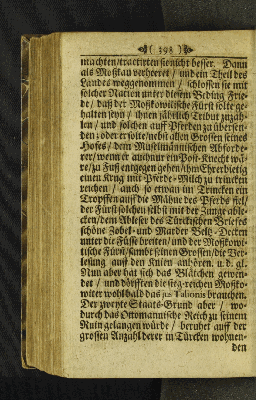 ( 398 )
machten/ tractirten sie nicht besser. Dann
als Moßkau verheeret / und ein Theil des
Landes weggenommen / schlossen sie mit
solcher Nation unter diesem Beding Frie-
de / daß der Moßkowitische Fürst solte ge-
halten seyn / ihnen jährlich Tribut zuzah-
len / und solchen auff Pferden zu übersen-
den: oder er solte nebst allen Grossen seines
Hofes / dem Muselmännischen Abforde-
rer / wenn er auch nur ein Post-Knecht wä-
re / zu Fuß entgegen gehen / ihm Ehrerbietig
einen Krug mit Pferde-Milch zu trincken
reichen / auch so etwan im Trincken ein
Tropffen auff die Mähne des Pferds fiel /
der Fürst solchen selbst mit der Zunge able-
cken / dem Ableser des Türckischen Briefes
schöne Zobel- und Marder Beltz-Decken
unter die Füsse breiten / und der Moßkowi-
tische Fürst / sambt seinen Grossen / die Ver-
lesung auff den Knien anhören. u. d. g.
Nun aber hat sich das Blätchen gewen-
det / und dörfften die sieg-reichen Moßko-
witer wohl bald das jus Talionis brauchen.
Der zweyte Staats-Grund aber / wo-
durch das Ottomannische Reich zu seinem
Ruin gelangen würde / beruhet auff der
grossen Anzahl derer in Türcken wohnen-
den